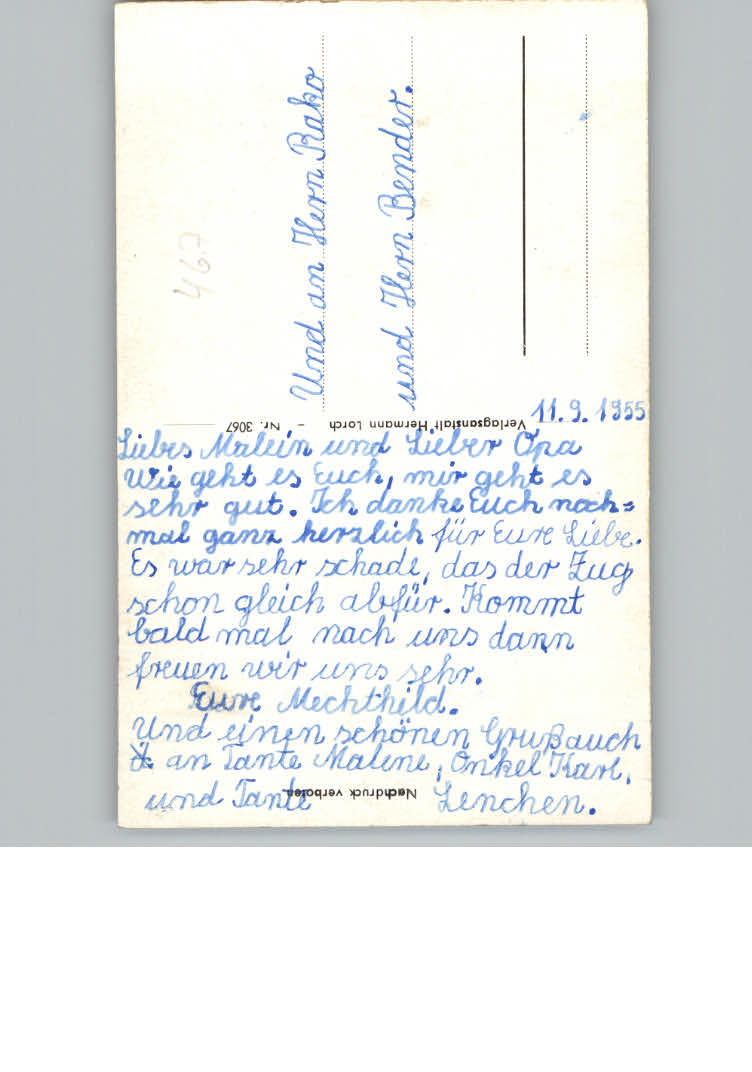 11.9.1955
Liebes Malein und Lieber Opa
Wie geht es Euch, mir geht es
sehr gut. Ich danke Euch noch=
mal ganz herzlich für Eure Liebe.
Es war sehr schade, das der Zug
schon gleich abfür. Kommt
bald mal nach uns dann
freuen wir uns sehr.
Eure Mechthild.
Und einen schönen Gruß auch
an Tante Malene, Onkel Karl,
und Tante Lenchen.
Und an Herrn Rako
und Herrn Bender.
Verlagsanstalt Hermann Lorch – Nr. 3067
Nachdruck verboten
467